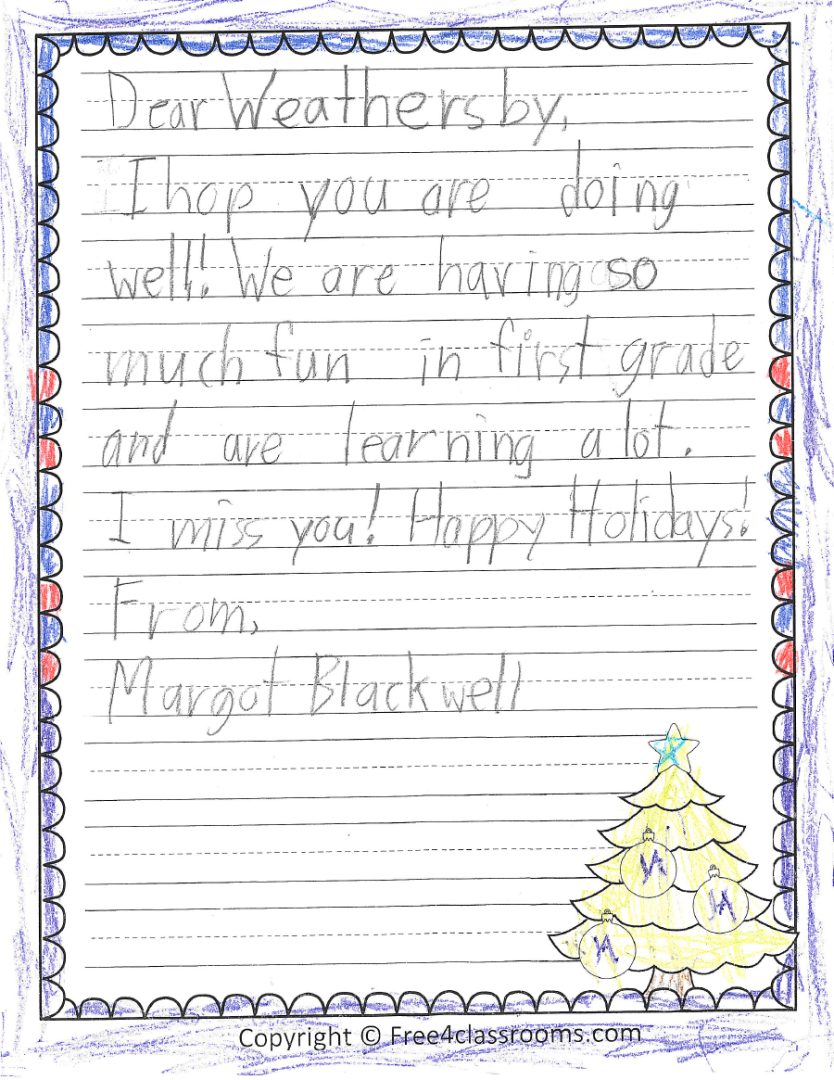 Dear Weathersby,
I hop you are doing
well! We are having so
much fun in first grade
and are learning a lot.
I miss you! Happy Holidays!
From,
Margot Blackwell
Copyright © Free4classrooms.com